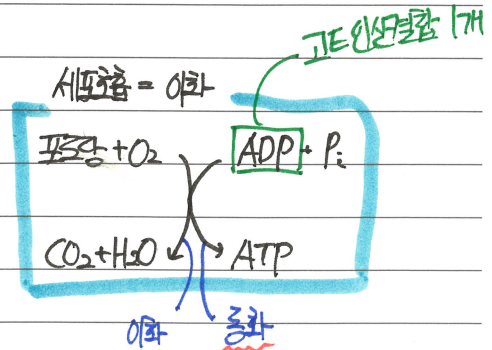 고E인산결합 1개
세포호흡 = 이화
포도당 + O₂ ADP + Pᵢ
CO₂+H₂O ATP
이화 동화